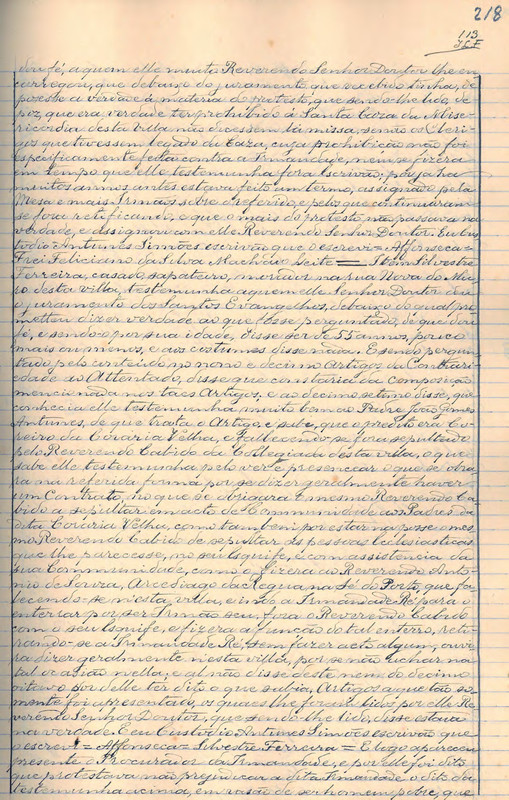 218
113
dou fé, a quem elle muito Reverendo Senhor Doutor lhe en
carregou, que debaixo do juramento que recebido tinha, de
pozesse a verdade á materia do protesto, que sendo-lhe lido, de
poz, que era verdade ter prohibido á Santa Caza da Mise
ricordia desta Villa não dicessem lá missa, senão os Cleri
gos que tivessem legado da Caza, cuja prohibição não foi
especificamente feita contra a Irmandade, nem se fizera
em tempo que elle testemunha fora Escrivão, pois já ha
muitos annos antes estava feito um termo, assignado pela
Mesa e mais Irmãos sobre o referido, e pelo que continuaram
se fora retificando, e que o mais do protesto, não passava na
verdade, e assignou com elle Reverendo Senhor Doutor. Eu Cus
todio Antunes Simões escrivão que o escrevi = Affonseca =
Frei Feliciano da Silva Machado Leite = Item Silvestre
Ferreira, casado, sapateiro, morador na rua Nova do Mu
ro desta villa, testemunha a quem elle Senhor Doutor deu
o juramento dos Santos Evangelhos, debaixo do qual pro
metteu dizer verdade ao que fosse perguntado, de que dou
fé, e sendo-o por sua idade, disse ser de 55 annos, pouco
mais ou menos, e aos costumes disse nada. E sendo pergun
tado, pelo conteúdo no nono e decimo Artigos da Contrari
edade ao Attentado, disse que constaria da composição
mencionada nos taes Artigos, e ao decimo setimo disse, que
conhecia elle testemunha muito bem ao Padre João Gomes
Antunes, de que trata o Artigo, e sabe, que o predito era Co
reiro da Coraria Velha, e fallecendo se fora sepultado
pelo Reverendo Cabido da Collegiada desta villa, o que
sabe elle testemunha pelo ver e presenciar o que se obra
ra na referida forma por se dizer geralmente haver
um Contrato, no que se obrigara o mesmo Reverendo Ca
bido a sepultar em acto de Communidade aos Padres da
dita Coraria Velha, como tambem por estar na posse o mes
mo Reverendo Cabido de sepultar ás pessoas Ecclesiasticas
que lhe parecesse, no seu esquife, e com assistencia da
sua Communidade, como o fizera ao Reverendo Anto
nio de Souza, Arcediago da Regua na Sé do Porto, que fa
lecendo-se n'esta villa, e indo a Irmandade Ré para o
enterrar por ser Irmão seu, fora o Reverendo Cabido
com o seu esquife, e fizera a função do tal enterro, reti
rando-se a Irmandade Ré, sem fazer acto algum, ouvi
ra dizer geralmente n'esta villa, por se não achar na
tal occasião nella, e al não disse deste nem do decimo
oitavo por delle ter dito o que sabia, Artigos a que tão so
mente foi apresentado, os quaes lhe foram lidos por elle Re
verendo Senhor Doutor, que sendo-lhe lido, disse estava
na verdade. E eu Custodio Antunes Simões escrivão que
o escrevi = Affonseca = Silvestre Ferreira = E logo appareceu
presente o Procurador da Irmandade, e por elle foi dito
que protestava não prejudicar a dita Irmandade o dito da
testemunha acima, em rasão de ser homem pobre, que